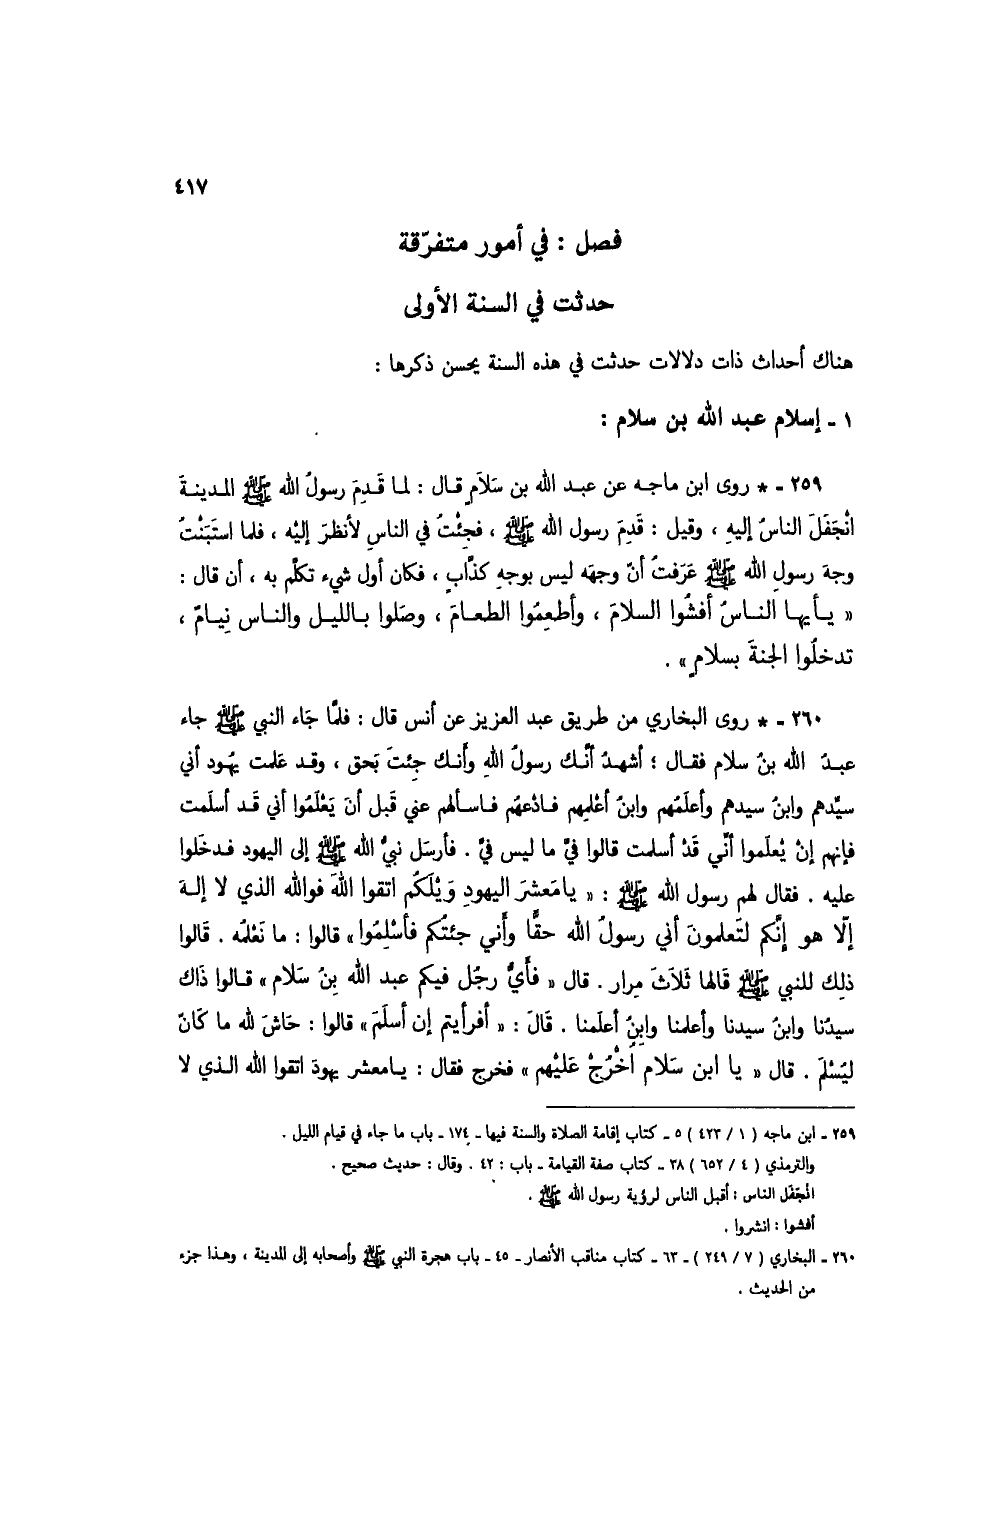 ٤١٧
فصل : في أمور متفرّقة
حدثت في السنة الأولى
هناك أحداث ذات دلالات حدثت في هذه السنة يحسن ذكرها :
١ ـ إسلام عبد الله بن سلام :
٢٥٩ ـ * روى ابن ماجه عن عبد الله بن سَلاَمٍ قال : لما قَدِمَ رسولُ الله ﷺ المدينةَ
انْجَفَلَ الناسُ إليهِ ، وقيل : قَدِمَ رسول الله ﷺ ، فجِئْتُ في الناسِ لأنظرَ إليْه ، فلما استَبَنْتُ
وجهَ رسولِ الله ﷺ عَرَفتُ أنّ وجهَه ليس بوجهِ كذَّابٍ ، فكان أول شيء تكلّم به ، أن قال :
« يـأيها الناسُ أفشُوا السلامَ ، وأطعِمُوا الطعامَ ، وصَلوا بالليل والناس نِيامٌ ،
تدخلُوا الجنةَ بسلامٍ » .
٢٦٠ ـ * روى البخاري من طريق عبد العزيز عن أنس قال : فلمَّا جَاء النبي ﷺ جاء
عبدُ الله بنُ سلام فقال ؛ أشهدُ أنَّك رسولُ اللهِ وأنك جِئتَ بَحق ، وقد عَلمت يهُود أني
سيِّدهم وابنُ سيدهم وأعلَمُهم وابنُ أعْلمِهم فادْعهُم فاسألهم عني قَبل أنَ يَعْلَمُوا أني قَد أسلَمت
فإنهم إنْ يُعلَموا أنّي قَدْ أسلمت قالوا فيَّ ما ليس فيَّ . فأرسَل نبيُّ الله ﷺ إلى اليهود فدخَلوا
عليه . فقال لهم رسول الله ﷺ : « يامَعشرَ اليهودِ وَيْلَكُم اتقوا اللهَ فوالله الذي لا إلهَ
إلّا هو إنَّكم لتَعلمونَ أني رسولُ الله حقًّا وأَني جئتُكم فأسْلِمُوا » قالوا : ما نَعْلمُه . قَالوا
ذلِك للنبي ﷺ قَالها ثَلاَثَ مِرار . قال « فأَيُّ رجُل فيكم عبد الله بِنُ سَلام » قالوا ذَاك
سيدُنا وابنُ سيدنا وأعلمنا وابنُ أعلَمنا . قَالَ : « أفرأيتم إن أسلَمَ » قالوا : حَاشَ لله ما كَانَ
ليُسْلمَ . قال « يا ابن سَلام اُخْرُجْ عَليْهم » فخرج فقال : يـامعشر يهودَ اتقوا الله الذي لا
٢٥٩ ـ ابن ماجه ( ١ / ٤٢٣ ) ٥ ـ كتاب إقامة الصلاة والسنة فيها ـ ١٧٤ ـ باب ما جاء في قيام الليل .
والترمذي ( ٤ / ٦٥٢ ) ٣٨ ـ كتاب صفة القيامة ـ باب : ٤٢ . وقال : حديث صحيح .
انْجَفَل الناس : أقبل الناس لرؤية رسول الله ﷺ .
أفشوا : انشروا .
٢٦٠ ـ البخاري ( ٧ / ٢٤٩ ) ـ ٦٣ ـ كتاب مناقب الأنصار ـ ٤٥ ـ باب هجرة النبي ﷺ وأصحابه إلى المدينة ، وهذا جزء
من الحديث .